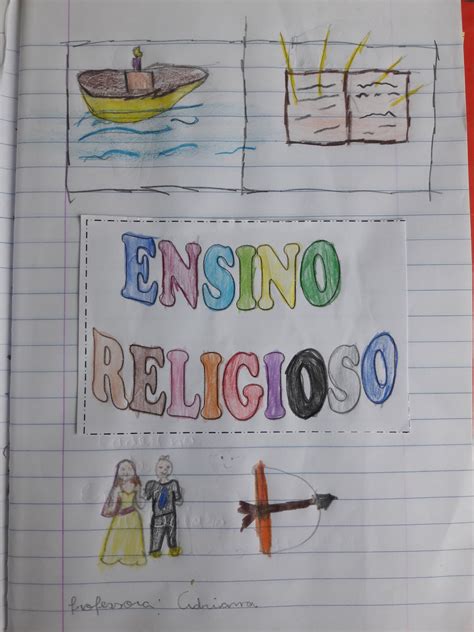 ENSINO
RELIGIOSO
Professora: Cidriana